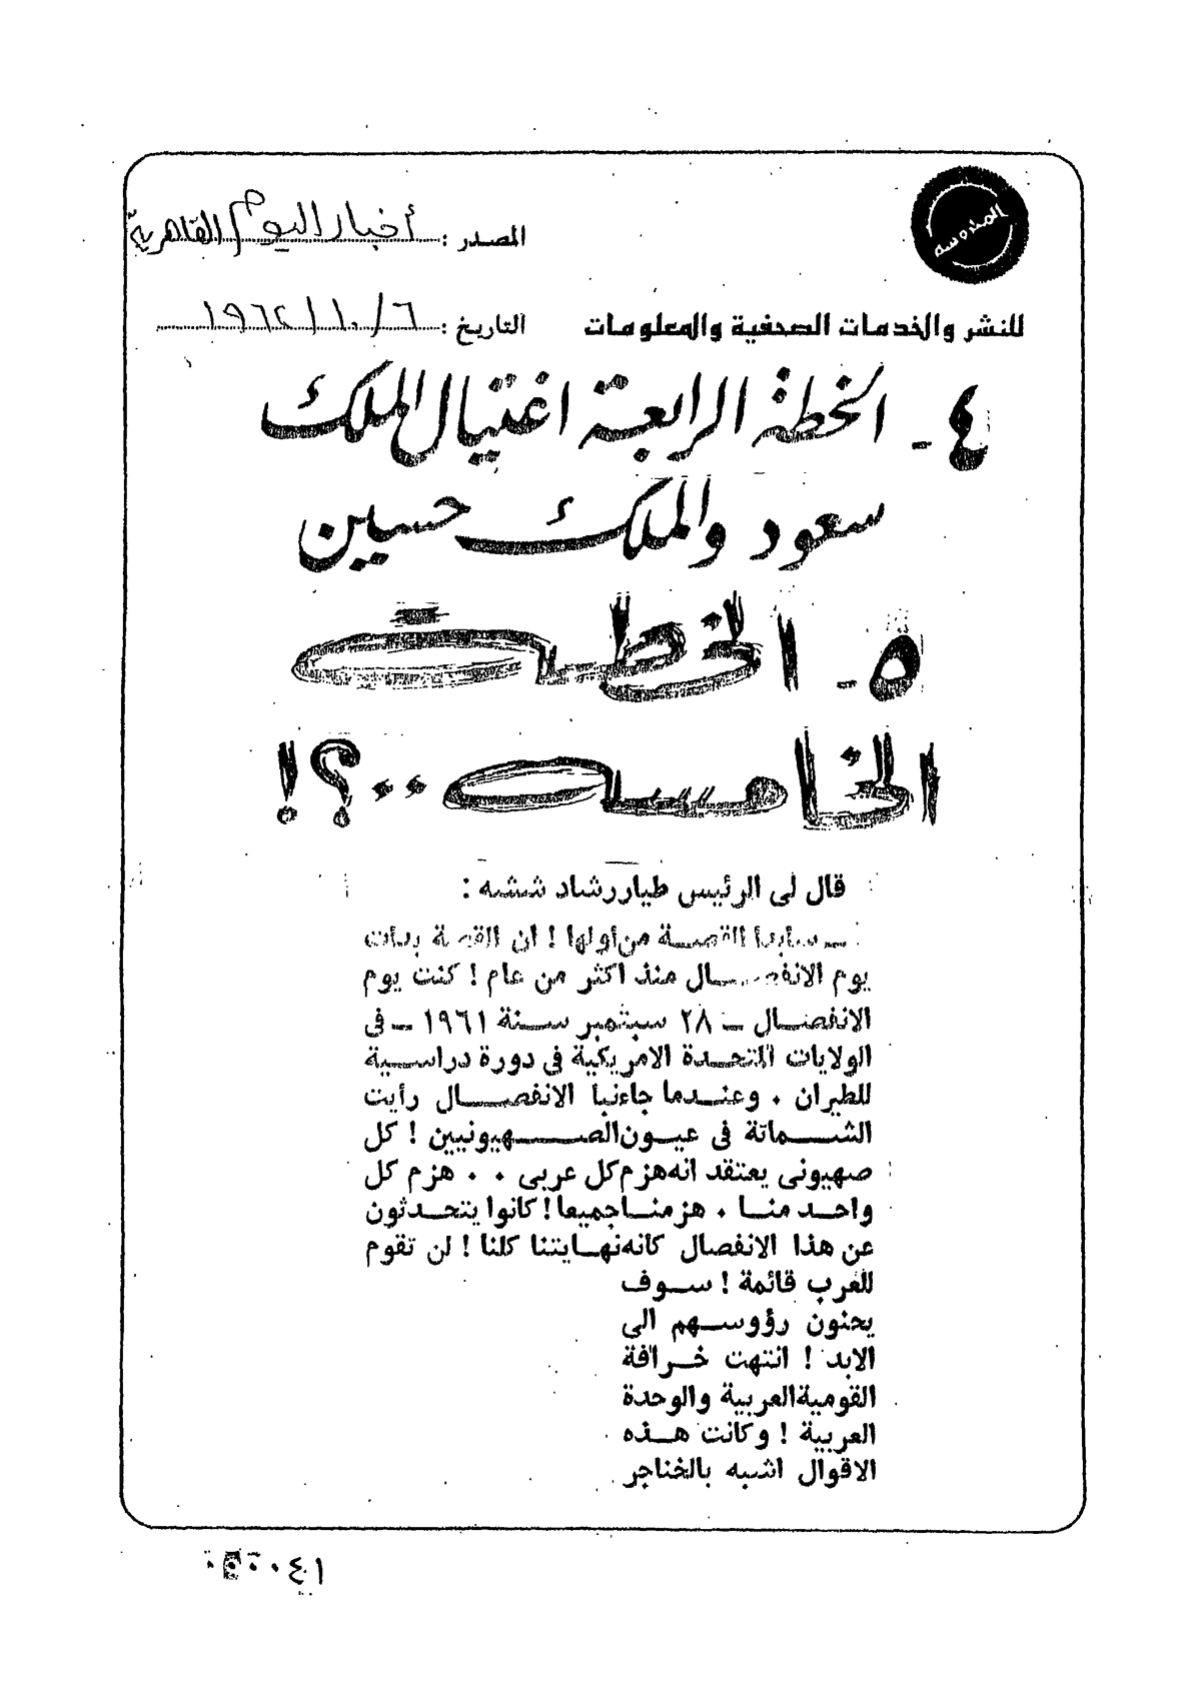 المحروسة
المصدر : أخبار اليوم القاهرية
للنشر والخدمات الصحفية والمعلومات
التاريخ : ٦ / ١٠ / ١٩٦٢
٤ - الخطة الرابعة اغتيال الملك
سعود والملك حسين
٥ - الخطة
الخامسه ..؟!
قال لى الرئيس طيار رشاد ششه :
ــ سابدا القصــة من أولها ! ان القصة بدأت
يوم الانفصــال منذ اكثر من عام ! كنت يوم
الانفصــال ــ ٢٨ سبتمبر ســنة ١٩٦١ ــ فى
الولايات المتحــدة الامريكية فى دورة دراســية
للطيران . وعنــدما جاءنبا الانفصــال رأيت
الشــماتة فى عيــون الصــهيونيين ! كل
صهيونى يعتقد انه هزم كل عربى . . هزم كل
واحــد منــا . هزمنــا جميعا ! كانوا يتحــدثون
عن هذا الانفصال كانه نهــايتنا كلنا ! لن تقوم
للعرب قائمة ! ســوف
يحنون رؤوســهم الى
الابد ! انتهت خــرافة
القومية العربية والوحدة
العربية ! وكانت هــذه
الاقوال اشبه بالخناجر